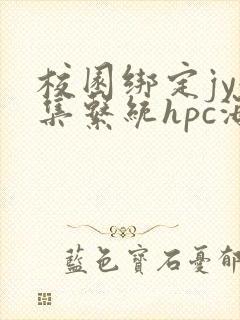 校園綁定jy
集繫統hpc
藍色寶石憂郁